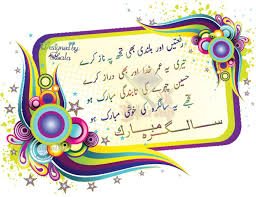 Designed by
رفعتیں اور بلندی بھی تجھ پہ ناز کرے
تیری یہ عمر خدا اور بھی دراز کرے
حسین چہرے کی تابندگی مبارک ہو
تجھے یہ سالگرہ کی خوشی مبارک ہو
سالگرہ مبارک